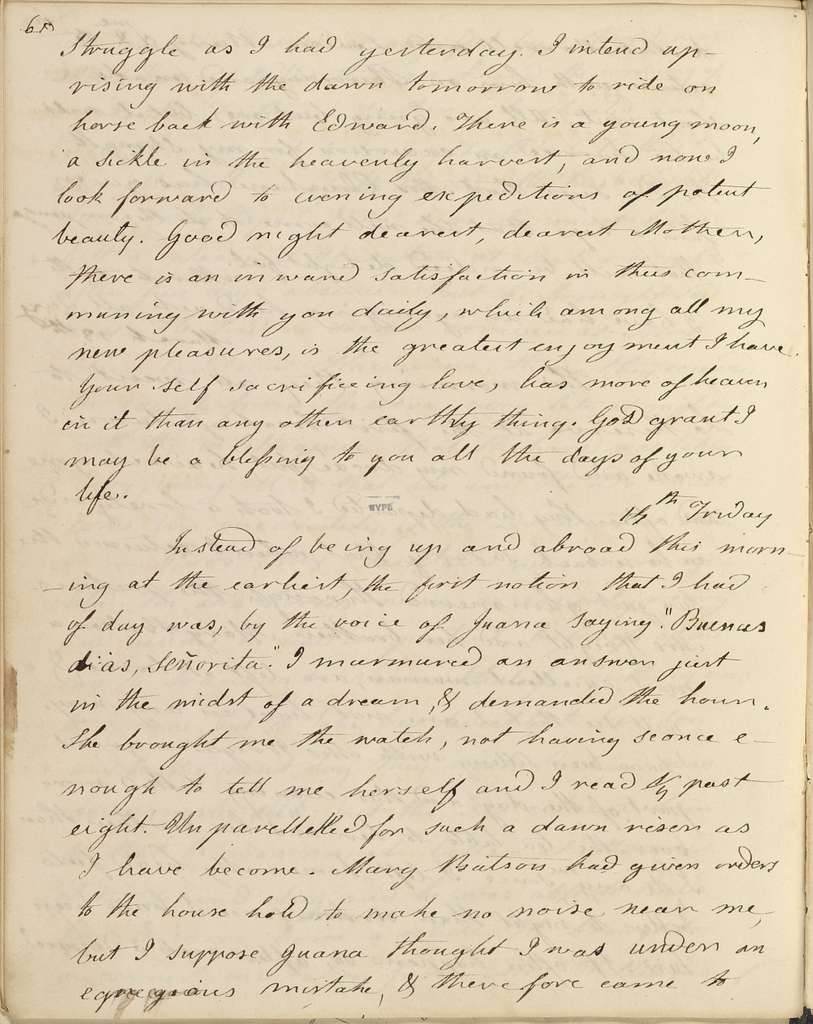 struggle as I had yesterday. I intend up-
rising with the dawn tomorrow to ride on
horse back with Edward. There is a young moon,
a sickle in the heavenly harvest, and now I
look forward to evening expeditions of potent
beauty. Good night dearest, dearest Mother,
there is an inward satisfaction in thus com-
muning with you daily, which among all my
new pleasures, is the greatest enjoyment I have.
Your self sacrificeing love, has more of heaven
in it than any other earthly thing. God grant I
may be a blessing to you all the days of your
life.
14th Friday
Instead of being up and abroad this morn-
-ing at the earliest, the first notion that I had
of day was, by the voice of Juana saying "Buenas
dias, Señorita". I murmured an answer just
in the midst of a dream, & demanded the hour.
She brought me the watch, not having sconce e-
nough to tell me herself and I read 1/4 past
eight. Unparellelled for such a dawn riser as
I have become. Mary Batson had given orders
to the house hold to make no noise near me,
but I suppose Juana thought I was under an
egregious mistake, & therefore came to